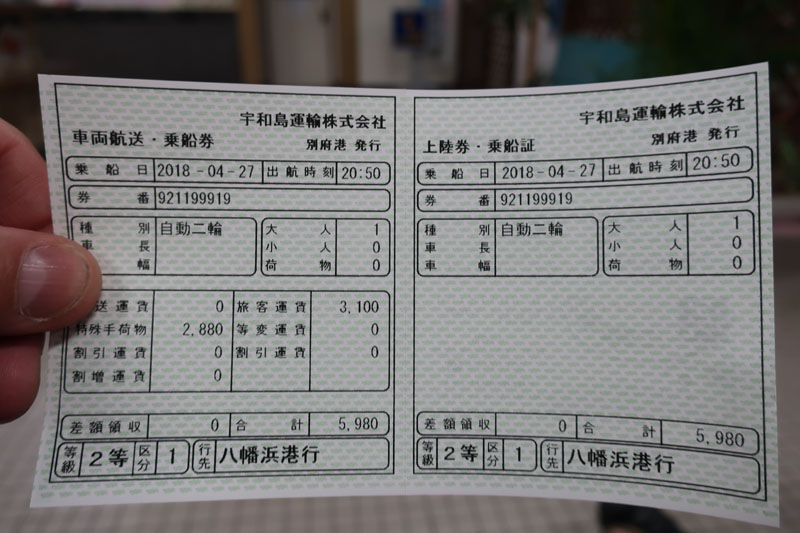 宇和島運輸株式会社
車両航送・乗船券 別府港 発行
乗船日 2018-04-27 出航時刻 20:50
券番 921199919
種別 自動二輪 大人 1
車長 小人 0
車幅 荷物 0
送運賃 0 旅客運賃 3,100
特殊手荷物 2,880 等変運賃 0
割引運賃 0 割引運賃 0
割増運賃 0
差額領収 0 合計 5,980
等級 2等 区分 1 行先 八幡浜港行
宇和島運輸株式会社
上陸券・乗船証 別府港 発行
乗船日 2018-04-27 出航時刻 20:50
券番 921199919
種別 自動二輪 大人 1
車長 小人 0
車幅 荷物 0
差額領収 0 合計 5,980
等級 2等 区分 1 行先 八幡浜港行